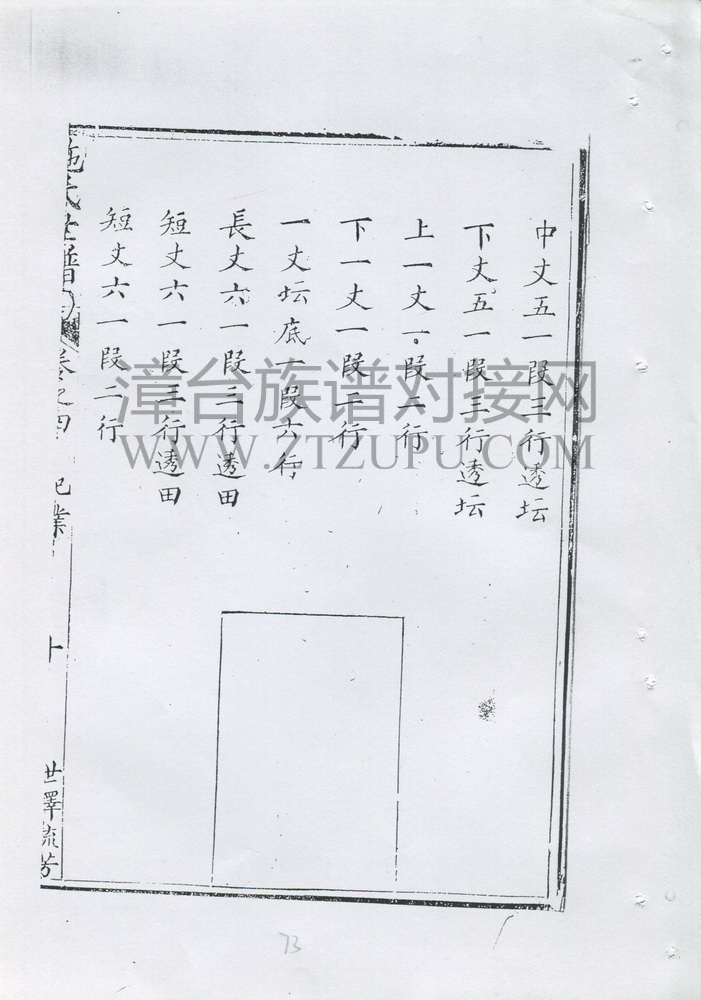 中丈五一段三行透坛
下丈五一段三行透坛
上一丈一段二行
下一丈一段二行
一丈坛底一段六行
長丈六一段二行透田
短丈六一段三行透田
短丈六一段二行
施氏世譜 卷之四 祀業 十 世澤流芳
漳台族谱对接网
WWW.ZTZUPU.COM
73